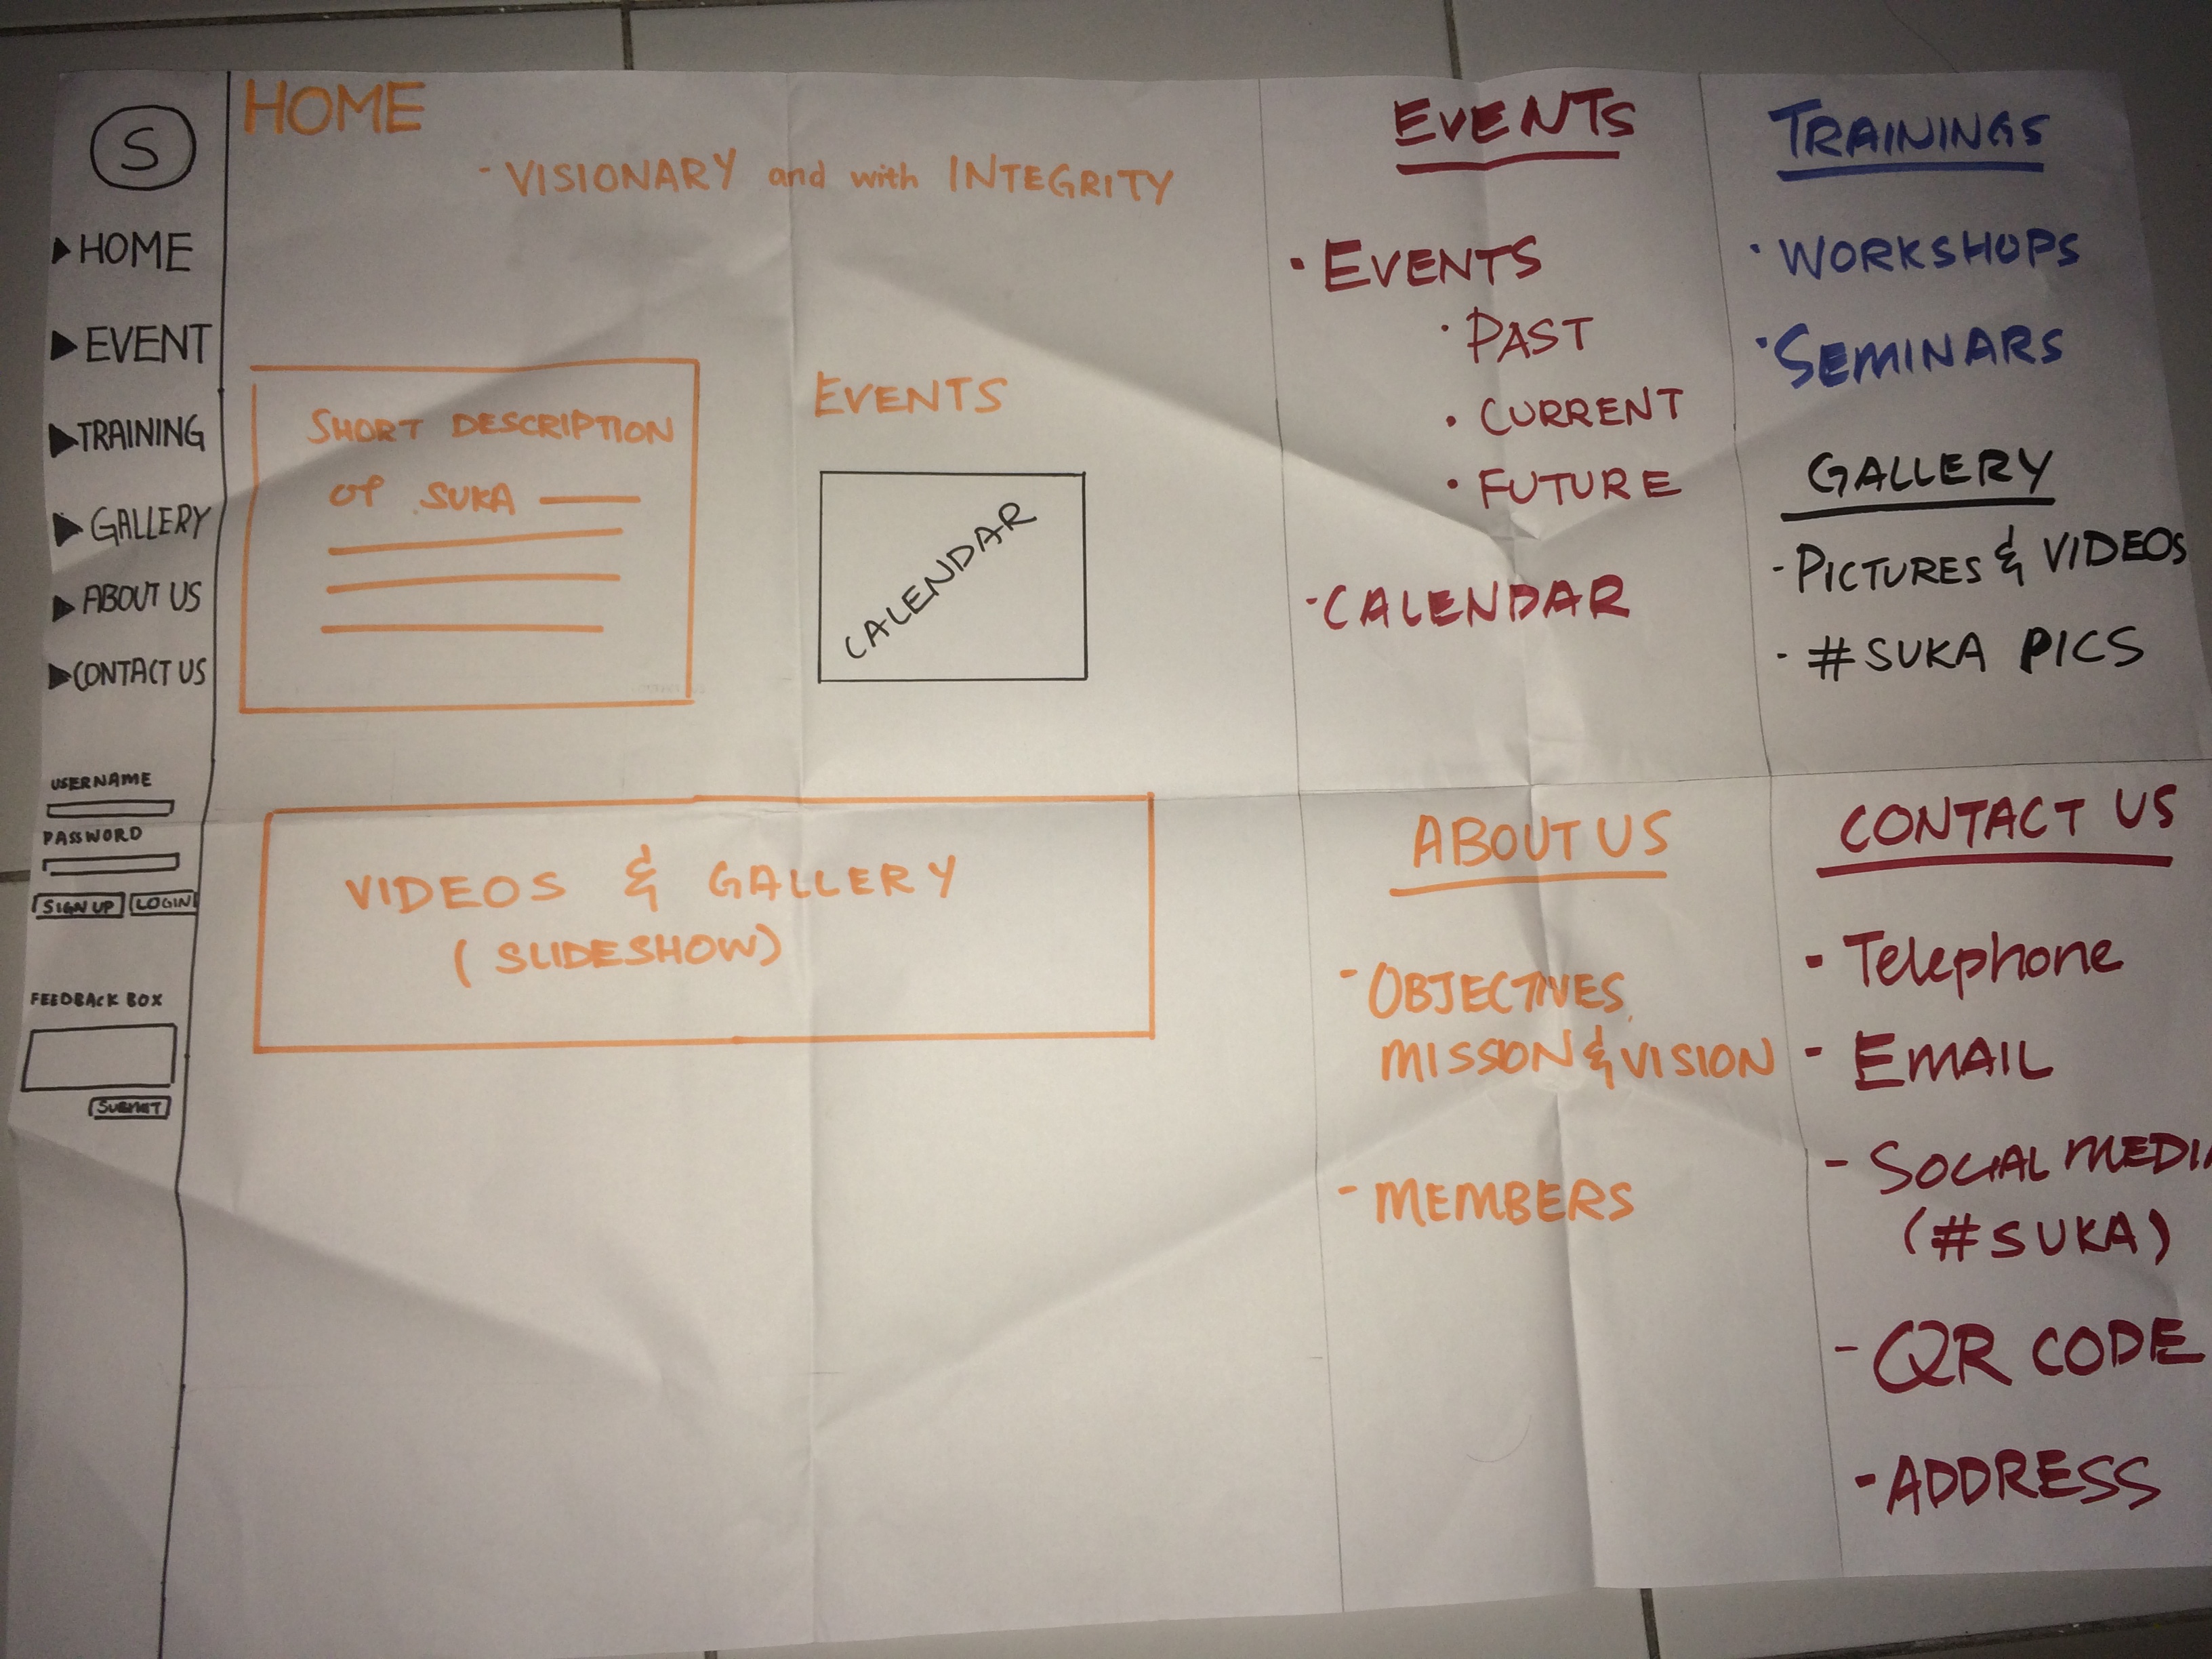 S
▶HOME
▶EVENT
▶TRAINING
▶GALLERY
▶ABOUT US
▶CONTACT US
USERNAME
PASSWORD
SIGN UP LOGIN
FEEDBACK BOX
SUBMIT
HOME
- VISIONARY and with INTEGRITY
SHORT DESCRIPTION
OF SUKA
EVENTS
CALENDAR
VIDEOS & GALLERY
(SLIDESHOW)
EVENTS
· EVENTS
· PAST
· CURRENT
· FUTURE
· CALENDAR
TRAININGS
· WORKSHOPS
· SEMINARS
GALLERY
- PICTURES & VIDEOS
- #SUKA PICS
ABOUT US
- OBJECTIVES,
MISSION & VISION
- MEMBERS
CONTACT US
- Telephone
- EMAIL
- SOCIAL MEDIA
(#SUKA)
- QR CODE
- ADDRESS